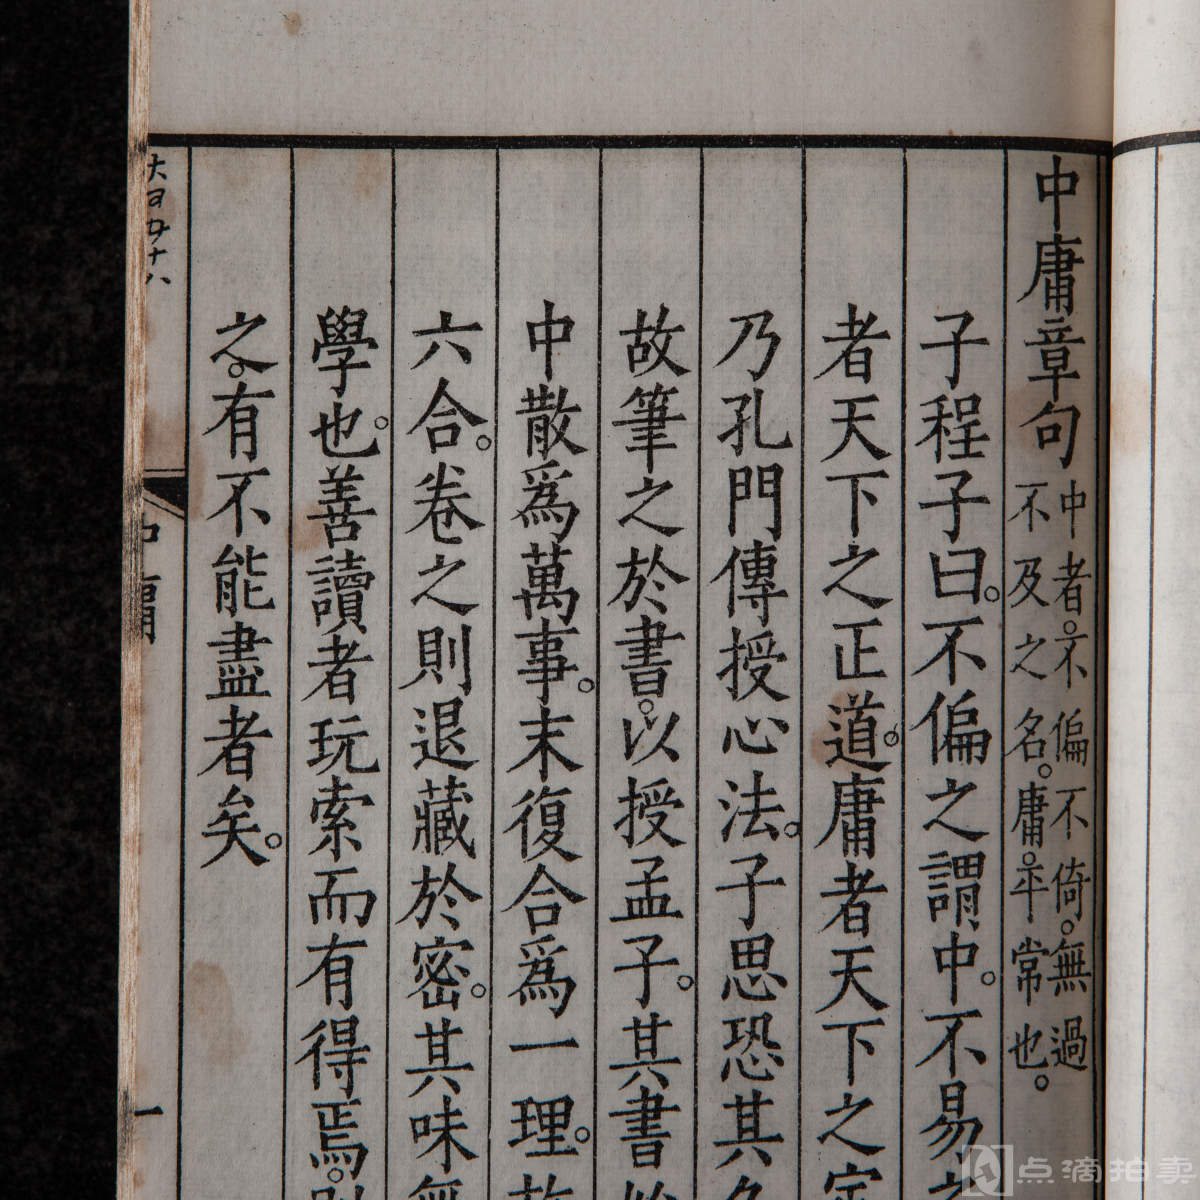 中庸章句
中者。不偏不倚。無過
不及之名。庸。平常也。
子程子曰。不偏之謂中。不易之
者天下之正道。庸者天下之定
乃孔門傳授心法。子思恐其久
故筆之於書。以授孟子。其書始
中散爲萬事。末復合爲一理。放
六合。卷之則退藏於密。其味無
學也。善讀者玩索而有得焉。則
之。有不能盡者矣。
中庸
一
点滴拍卖